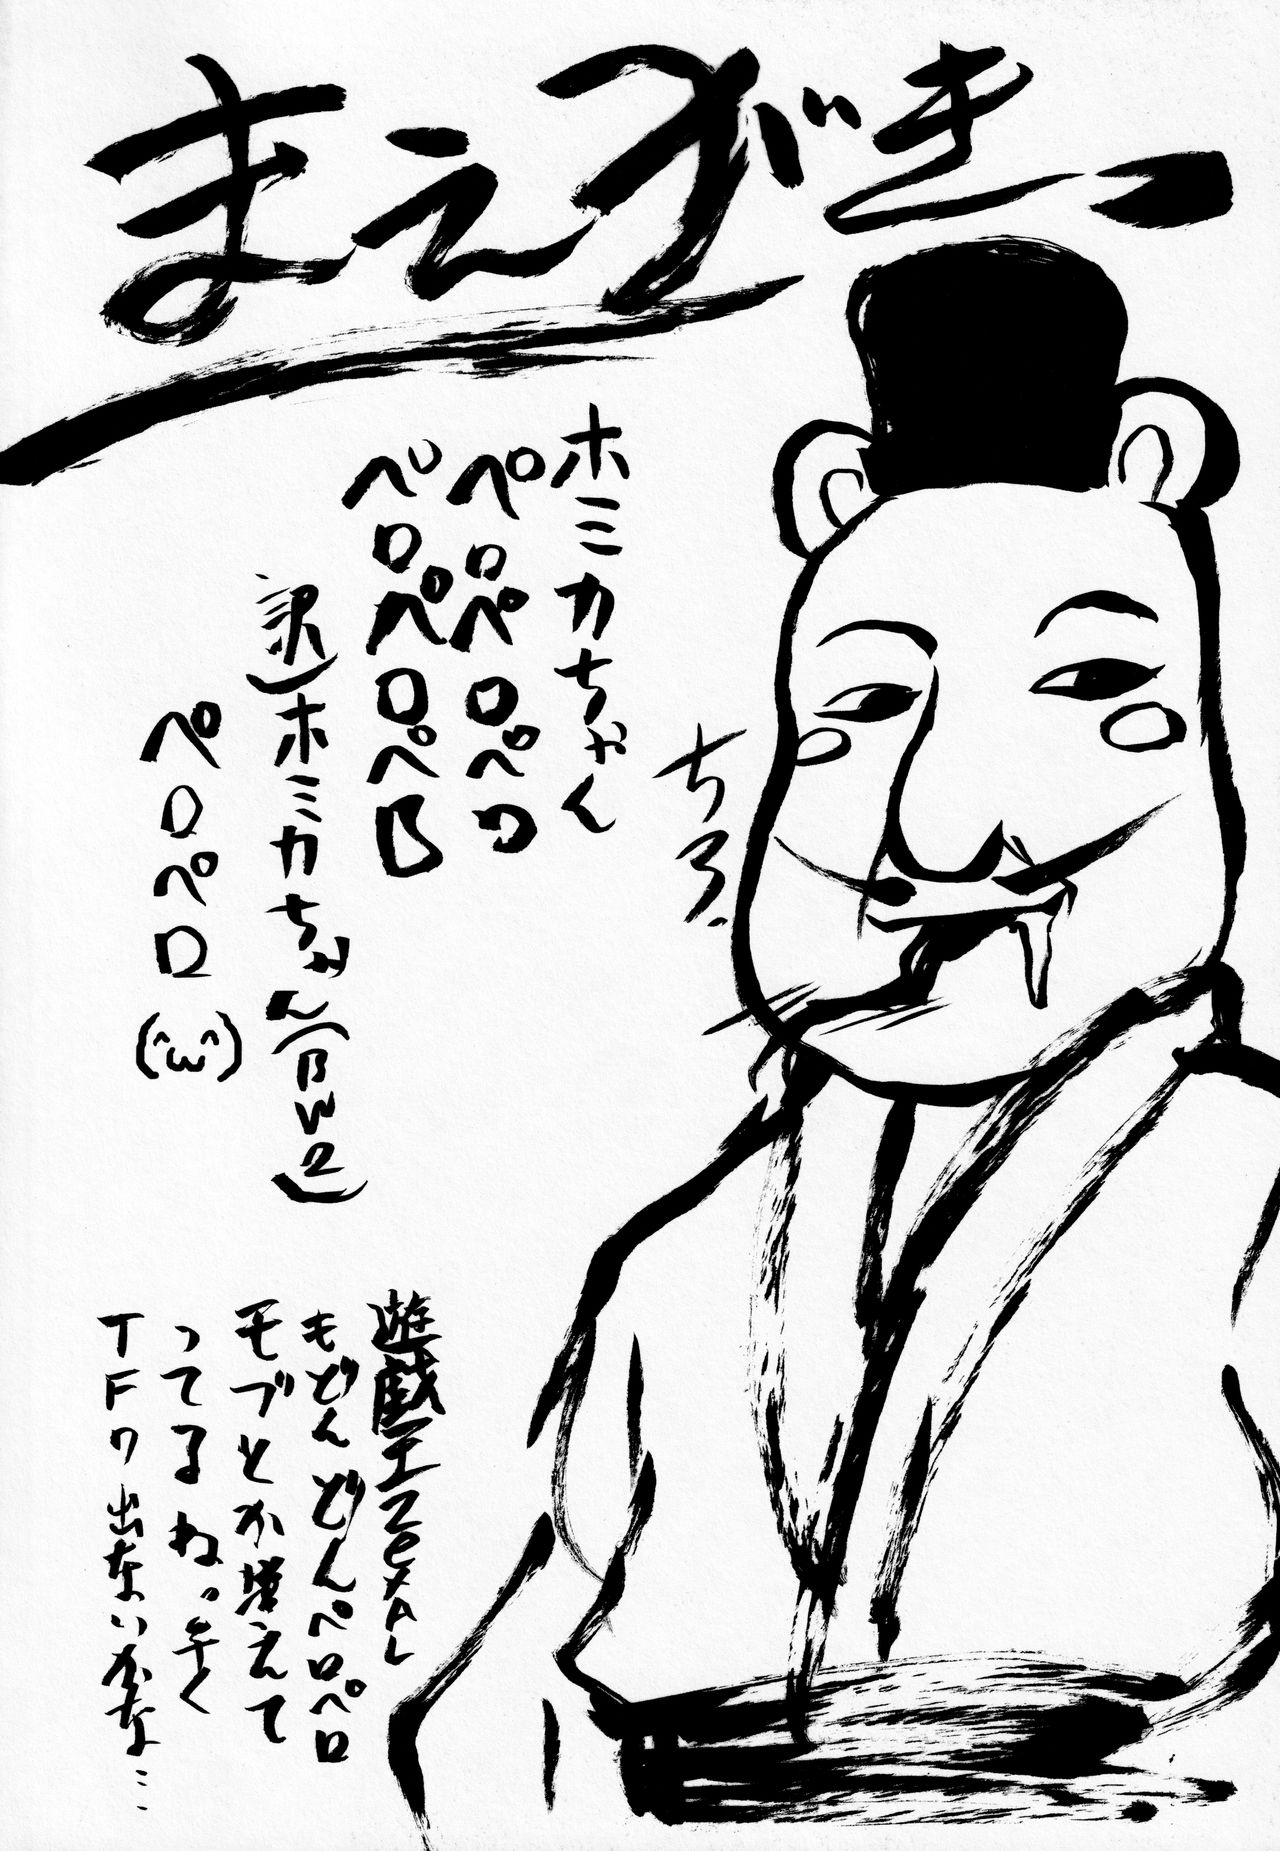 まえがき、
ちろ、
ホミカちゃん
ペロペロペロ
ペロペロペロ
訳)ホミカちゃん(BW2)
ペロペロ(^ω^)
遊戯王ZEXAL
もどんどんペロペロ
モブとか増えて
ってるね。早く
TF7出ないかな…